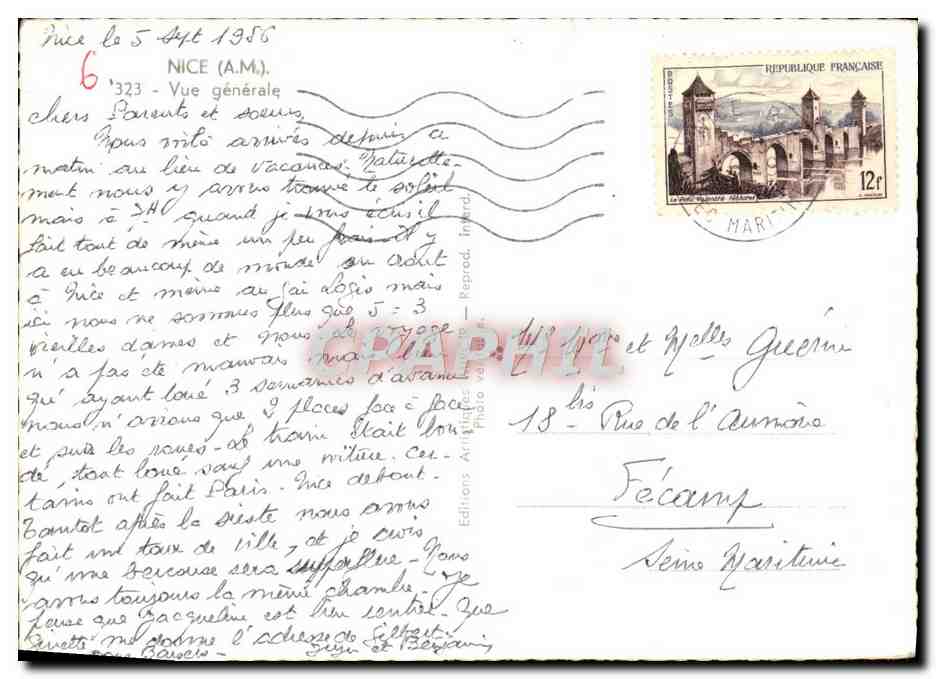 Nice le 5 Sept 1956
6
NICE (A.M.).
323 - Vue générale
chers Parents et soeurs,
Nous voilà arrivés depuis ce
matin au lieu de vacances. Naturelle-
ment nous y avons trouvé le soleil
mais à 3H quand je vous écris il
fait tout de même un peu frais il y
a eu beaucoup de monde on croit
à Nice et même au Gai Logis mais
ici nous ne sommes plus que 5 = 3
vieilles dames et nous le voyage
n'a pas été mauvais mais bien
qu'ayant loué 3 semaines d'avance
nous n'avions que 2 places face à face
et sur les roues - le train était bon-
dé, tout loué sauf une voiture. Cer-
tains ont fait Paris - Nice debout.
Tantôt après la sieste nous avons
fait un tour de ville, et je crois
qu'une berceuse sera - Nous
avons toujours la même chambre. Je
pense que Jacqueline est bien rentrée. Que
Ginette me donne l'adresse de Gilbert
Bons Baisers - et Benjamin
Editions Artistiques - Reprod. Interd.
Photo
CPAPHIL
REPUBLIQUE FRANÇAISE
POSTES
Le Pont Valentré-Cahors
12F
ALPES MARITIMES
Mr Mme et Melles Guérin
18 bis Rue de l'Aumône
Fécamp
Seine Maritime